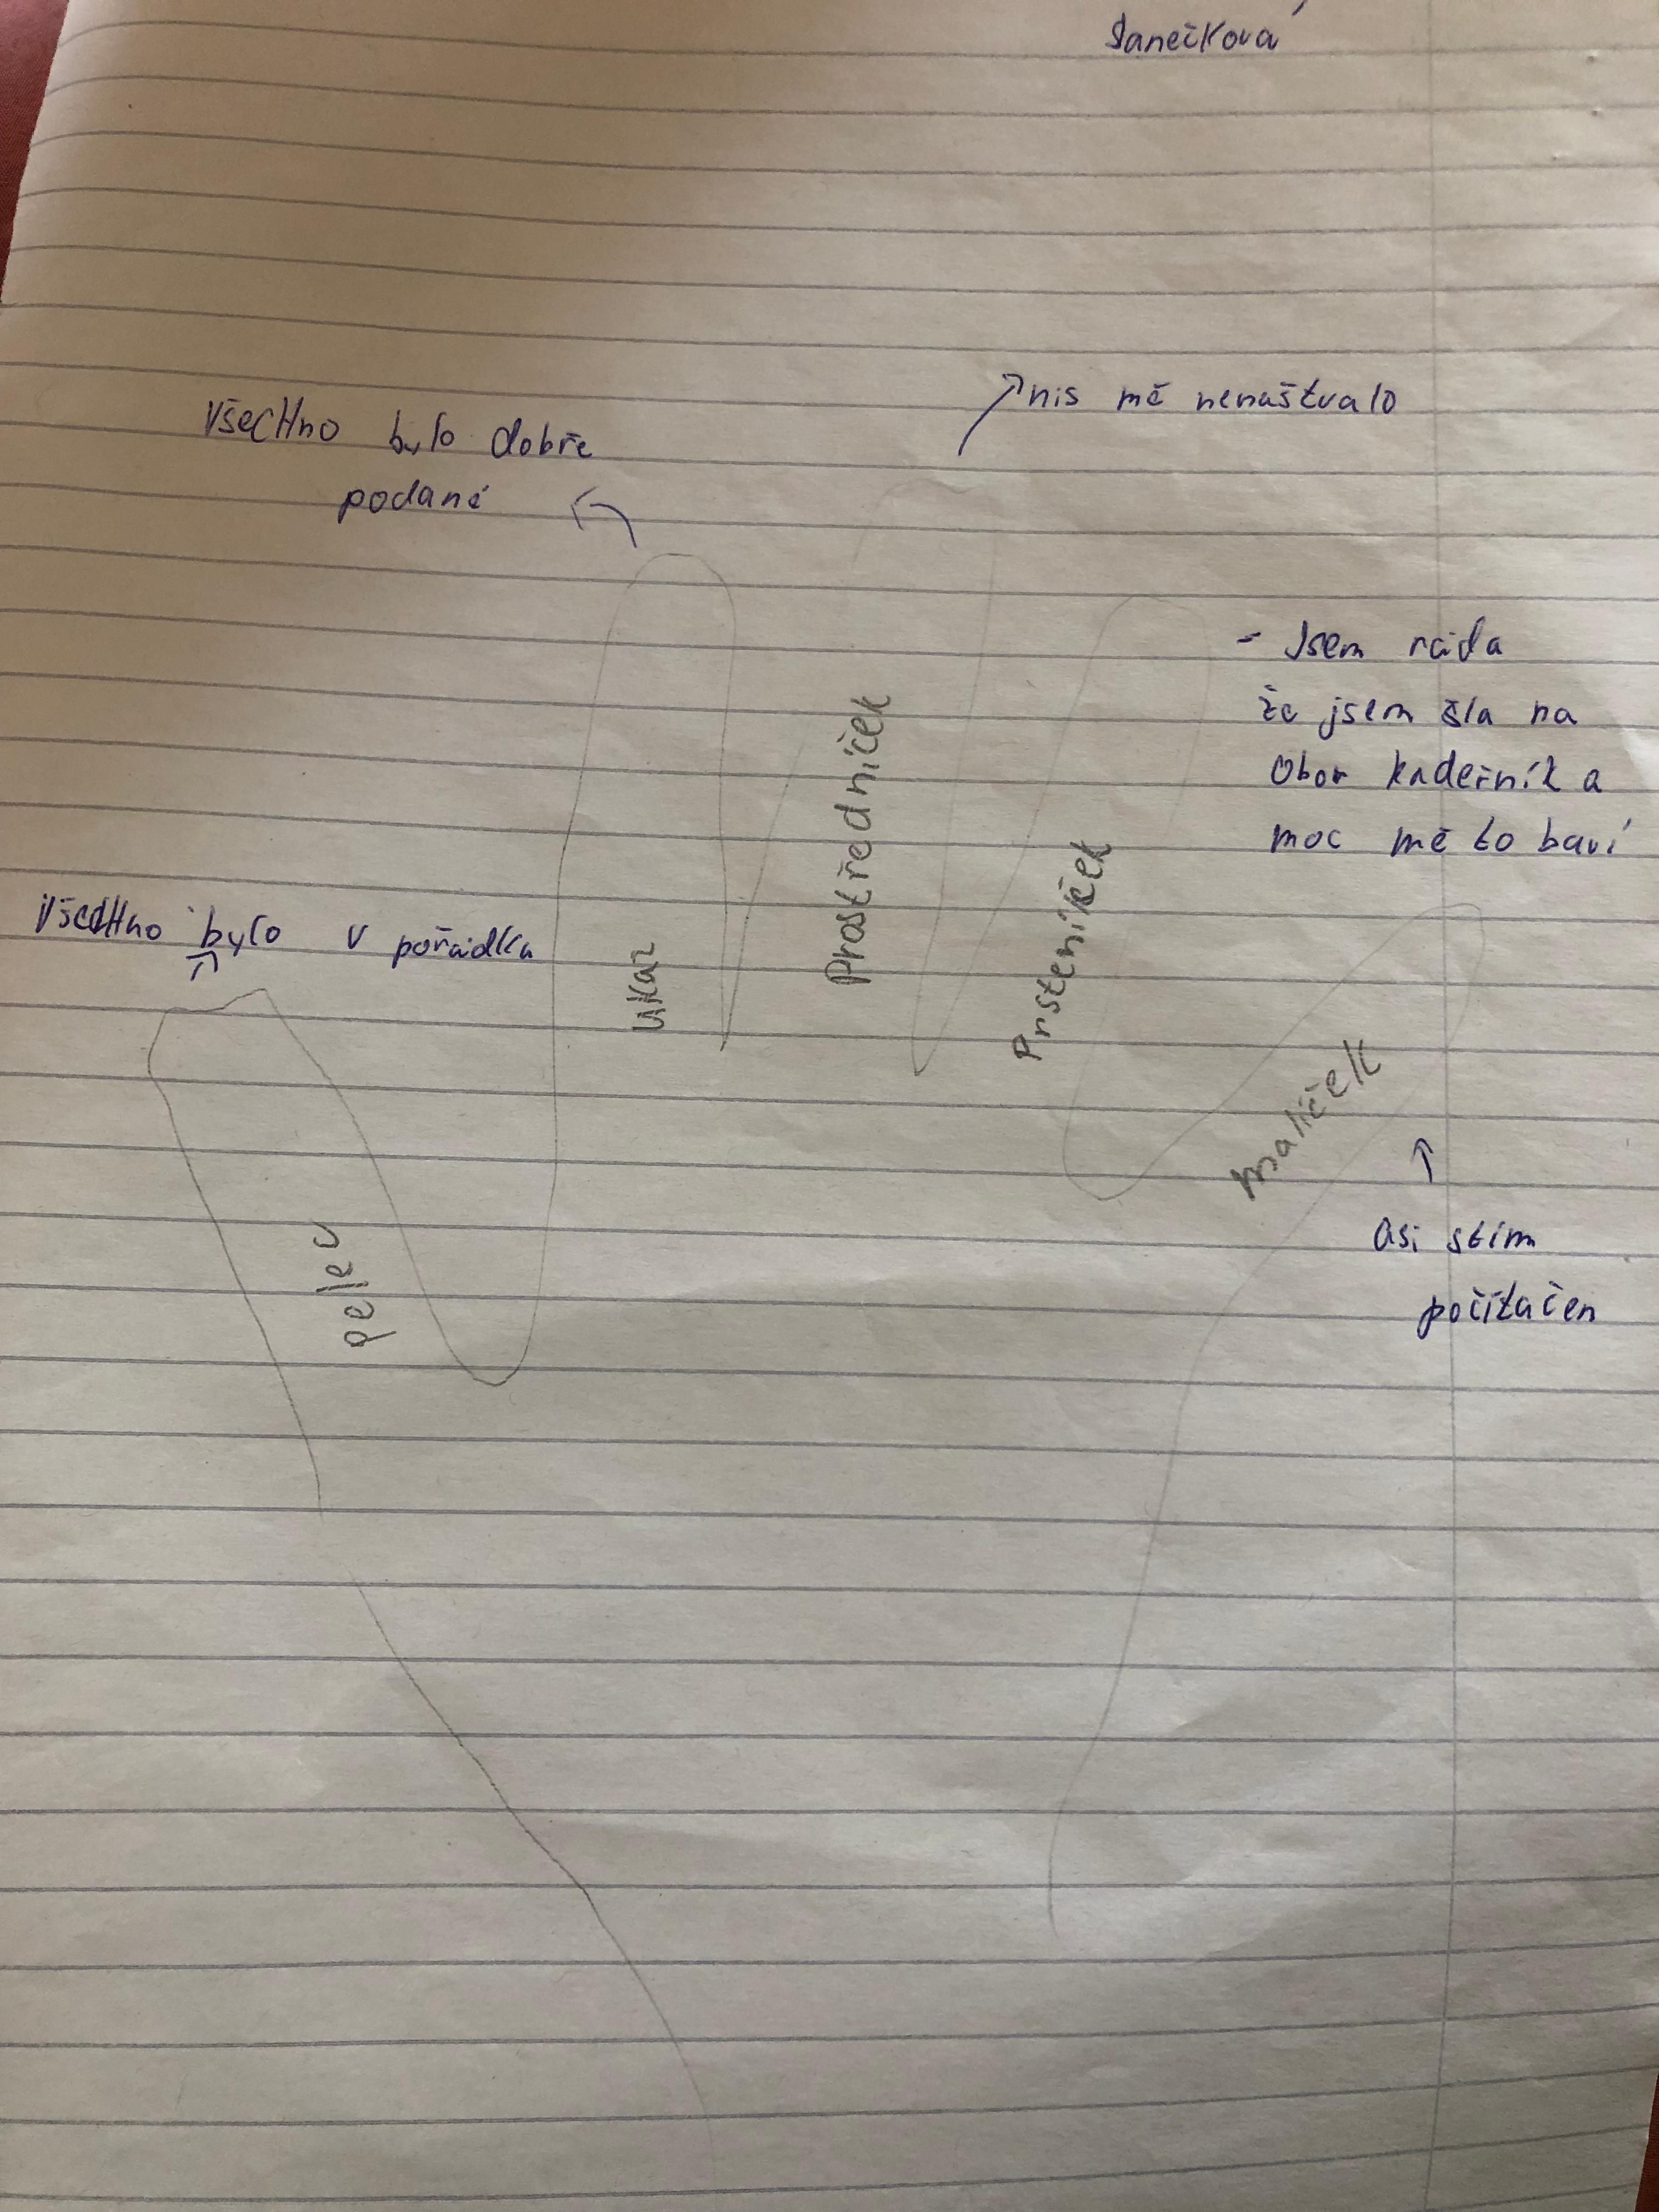 Janečková
nis mě nenaštvalo
všecHno bylo dobře
podané
- Jsem ráda
že jsem šla na
Obor kadeřník a
moc mě to baví
Prostředníček
Prsteníček
všecHno bylo v pořádku
ukaz
maliček
asi stím
počítačen
palec